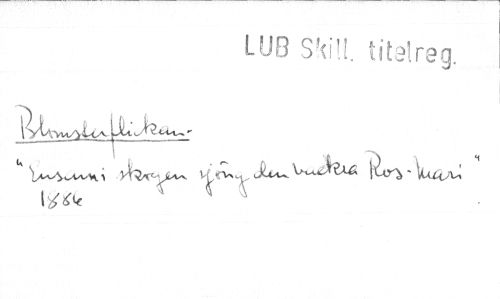 LUB Skill. titelreg.
Blomsterflickan.
"Ensam i skogen sjöng den vackra Ros-Mari"
1886